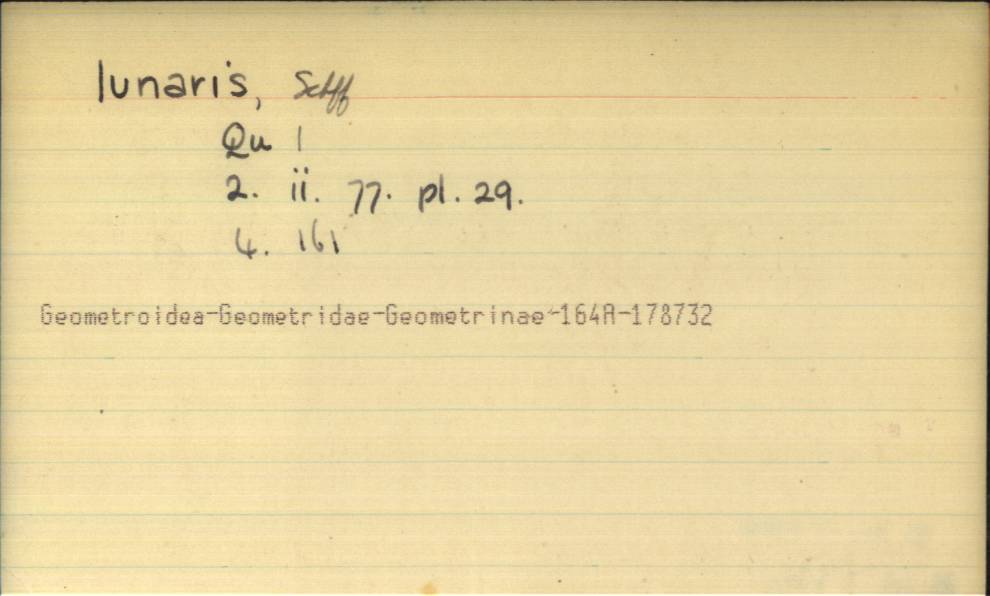 lunaris, Schff
Qu 1
2. ii. 77. pl. 29.
4. 161
Geometroidea-Geometridae-Geometrinae-164A-178732